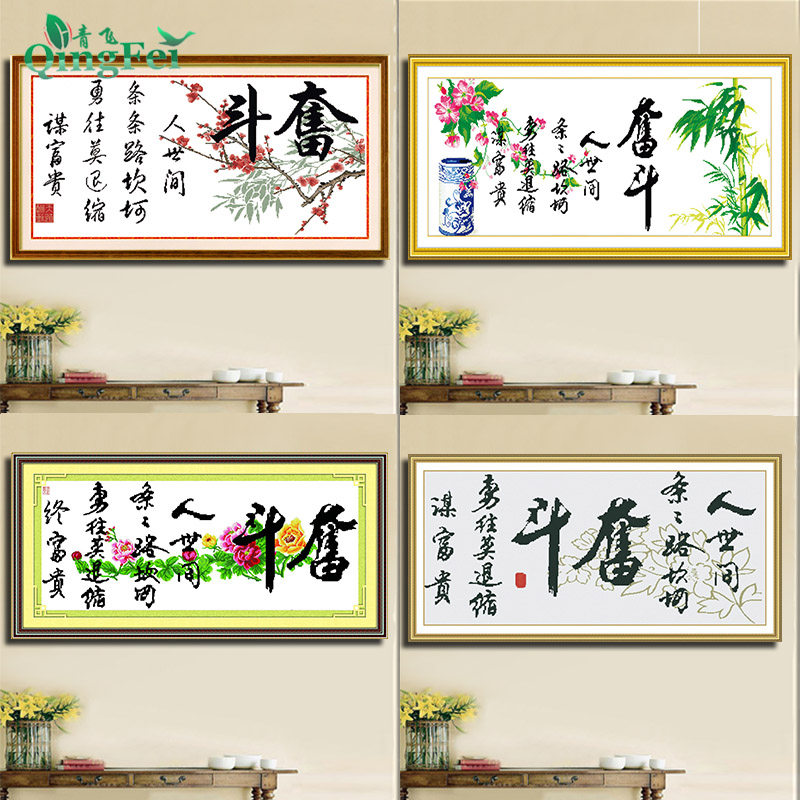 青飞
QingFei
奋斗
人世间
条条路坎坷
勇往莫退缩
谋富贵
奮斗
人世间
条々路坎坷
勇往莫退缩
谋富贵
奮斗
人世间
条々路坎坷
勇往莫退缩
终富贵
人世间
条々路坎坷
奮斗
勇往莫退缩
谋富贵